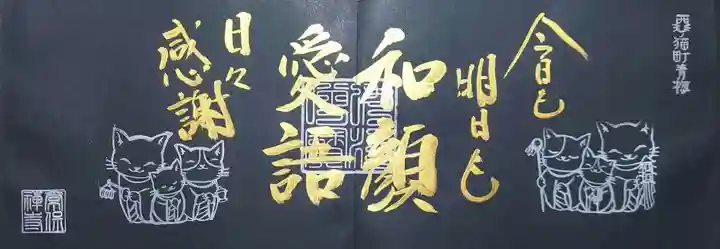 西ノ猫町青梅
今日も
明日も
和顔
愛語
日々
感謝